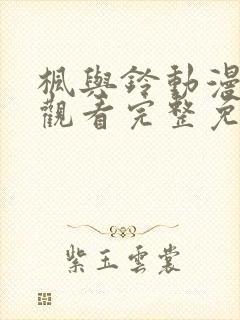 楓與鈴動漫
觀看完整免
紫玉雲裳